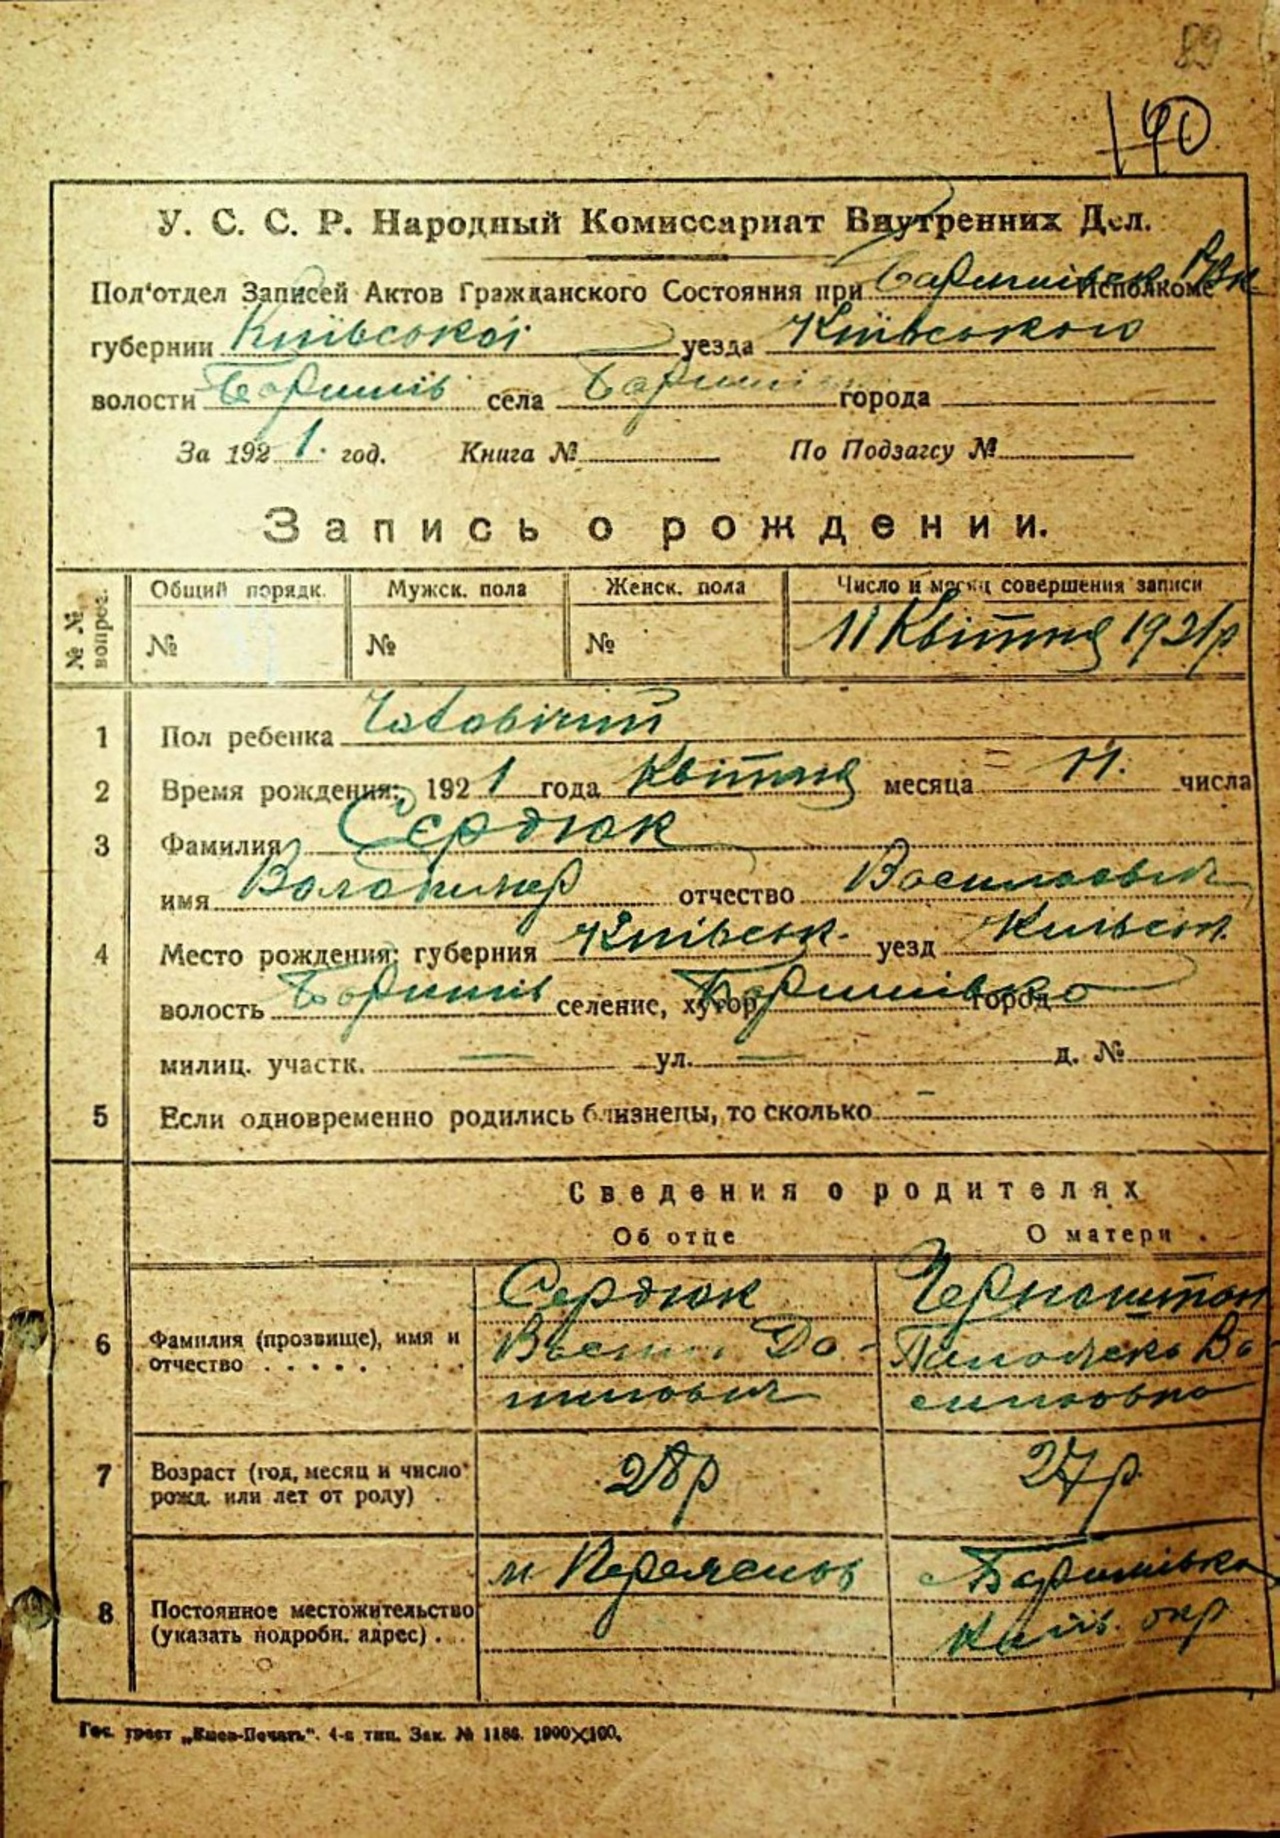 89
190
У. С. С. Р. Народный Комиссариат Внутренних Дел.
Под‘отдел Записей Актов Гражданского Состояния при Баришівск. РВК Исполкоме
губернии Київської уезда Київського
волости Баришів села Бариші города
За 1921. год. Книга № По Подзагсу №
Запись о рождении.
№ № вопрос.
Общий порядк. Мужск. пола Женск. пола Число и месяц совершения записи
№ № № 11 Квітня 1921 р
1 Пол ребенка Чоловічий
2 Время рождения: 1921 года Квітня месяца 11. числа
3 Фамилия Сєрдюк
имя Володимер отчество Васильович
4 Место рождения: губерния Київськ. уезд Київськ.
волость Баришів селение, хутор Баришівка город
милиц. участк. — ул. — д. №
5 Если одновременно родились близнецы, то сколько -
Сведения о родителях
Об отце О матери
6 Фамилия (прозвище), имя и отчество
Сердюк
Василь
Черноштан
Василовна
7 Возраст (год, месяц и число рожд. или лет от роду)
28 р 27 р.
8 Постоянное местожительство (указать подробн. адрес)
м Переяслов
с Баришівка
Київ. окр
Гос. трест „Киев-Печать“. 4-я тип. Зак. № 1186. 1900×100.